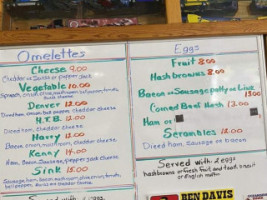 Omelettes
Cheese 9.00
Cheddar or Swiss or pepper Jack
Vegetable 10.00
Spinach, onion, mushroom, cheese
Denver 12.00
Diced ham, cheddar cheese
H.T.B. 13.00
Diced ham, cheddar cheese
Navy 13.00
Bacon, onion, mushroom, cheddar cheese
Keny 14.00
Ham, Bacon, Sausage, pepper Jack cheese
Sink 15.00
Sausage, ham, bacon, onion, tomato,
bell pepper,
Eggs
Fruit 8.00
Hashbrowns 8.00
Bacon or Sausage patty or Link
13.00
Corned Beef Hash 13.00
Ham or
Scrambles 13.00
Diced Ham, Sausage or bacon
Served with 2 eggs
hashbrowns or fresh fruit and toast, biscuit
or english muffin
BEN DAVIS